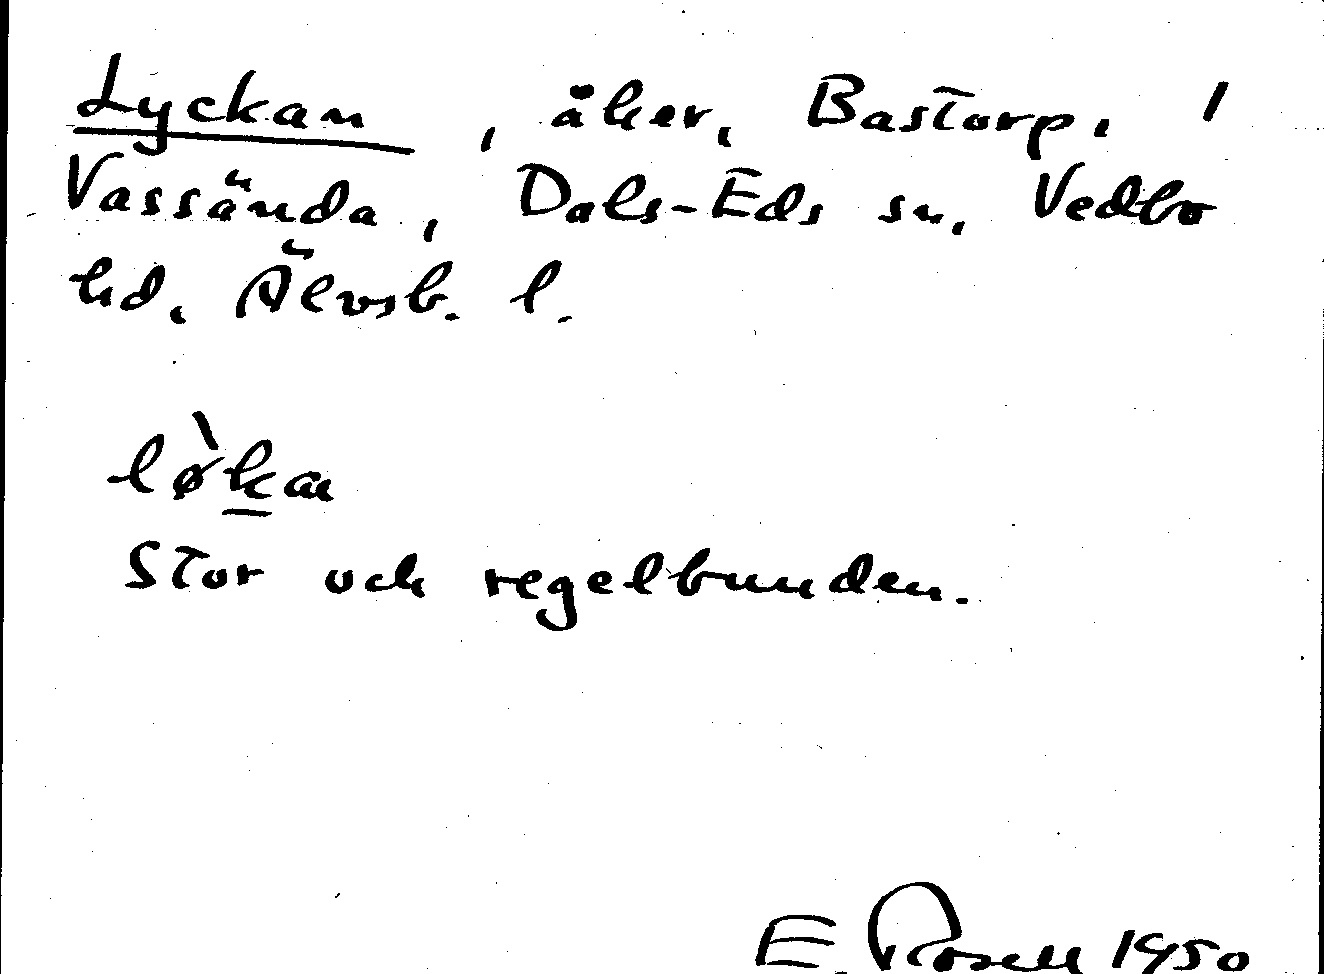 Lyckan, åker, Bastorp, /
Vassända, Dals-Eds sn, Vedbo
hd, Älvsb. l.
lø̀kan
Stor och regelbunden.
E. Rosell 1950